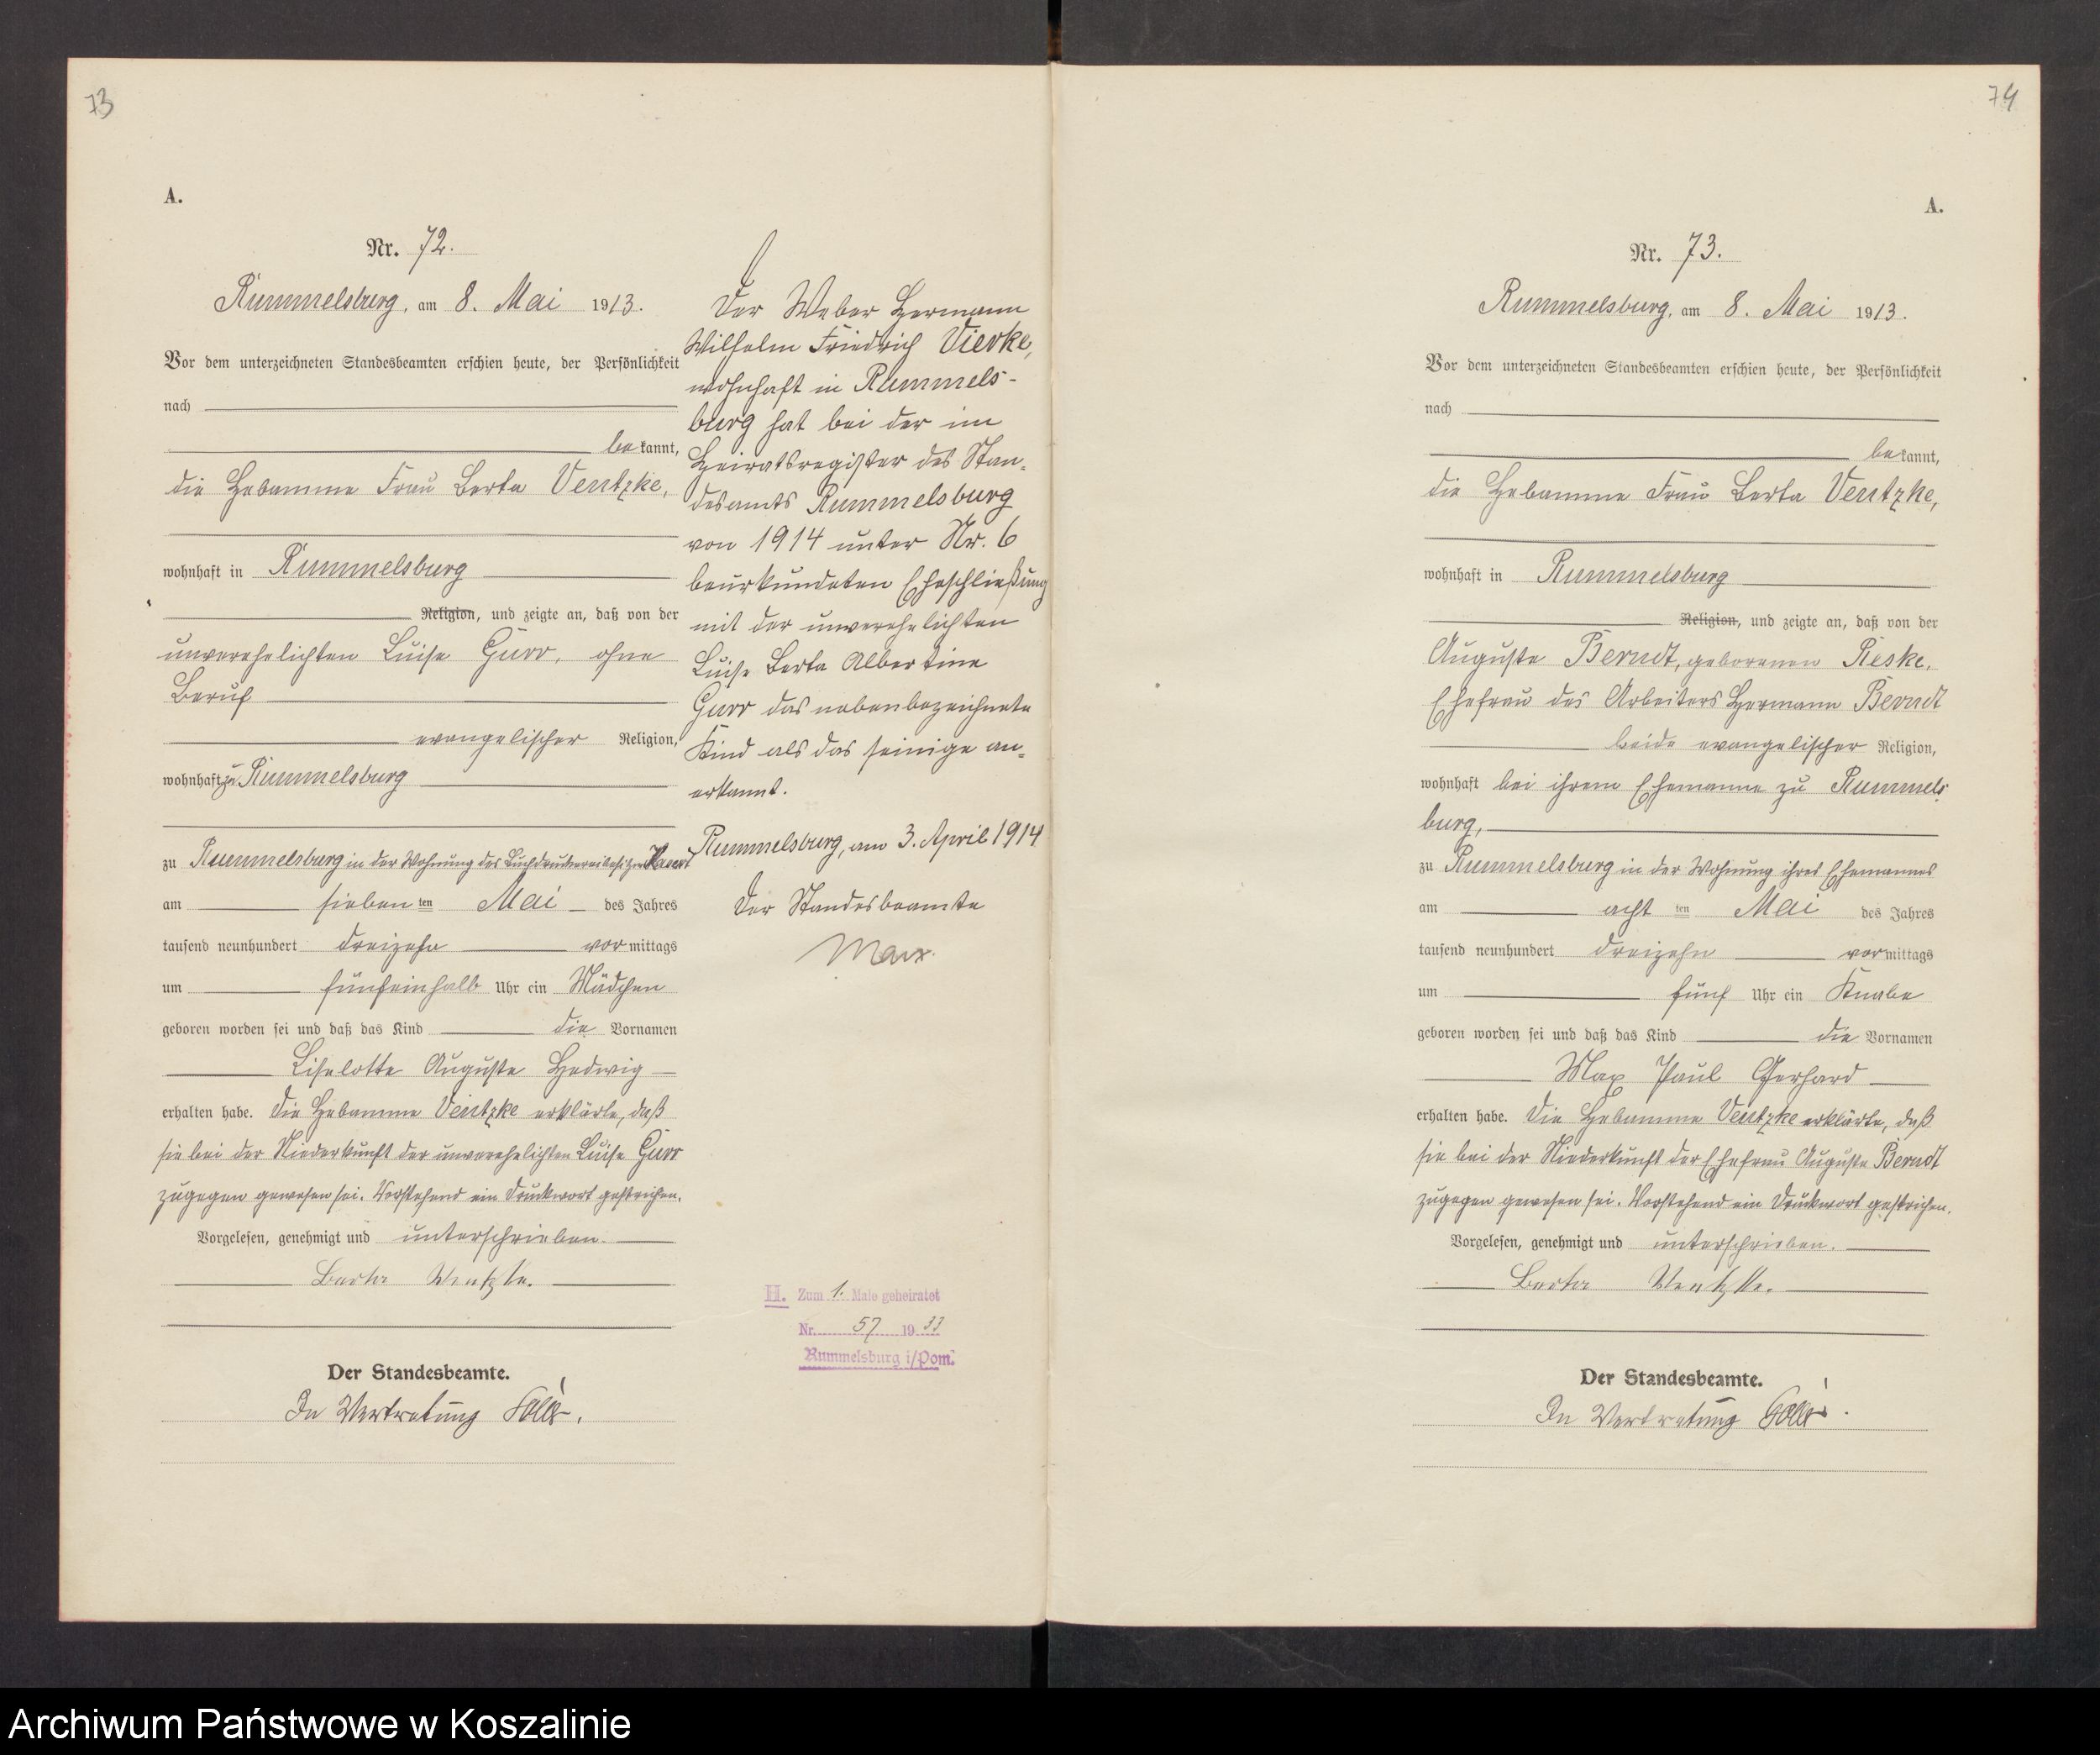 73
A.
Nr. 72.
Rummelsburg, am 8. Mai 1913.
Vor dem unterzeichneten Standesbeamten erschien heute, der Persönlichkeit
nach
bekannt,
die Hebamme Frau Berta Ventzke,
wohnhaft in Rummelsburg
Religion, und zeigte an, daß von der
unverehelichten Luise Gurr, ohne
Beruf
evangelischer Religion,
wohnhaft zu Rummelsburg
zu Rummelsburg in der Wohnung des Buchdruckereibesitzers
am siebenten Mai des Jahres
tausend neunhundert dreizehn vormittags
um fünfeinhalb Uhr ein Mädchen
geboren worden sei und daß das Kind die Vornamen
Liselotte Auguste Hedwig
erhalten habe. Die Hebamme Ventzke erklärte, daß
sie bei der Niederkunft der unverehelichten Luise Gurr
zugegen gewesen sei. Vorstehend ein Druckwort gestrichen.
Vorgelesen, genehmigt und unterschrieben.
Berta Ventzke.
Der Standesbeamte.
In Vertretung
Der Weber Hermann
Wilhelm Friedrich Vierke,
wohnhaft in Rummels-
burg hat bei der im
Heiratsregister des Stan-
desamts Rummelsburg
von 1914 unter Nr. 6
beurkundeten Eheschließung
mit der unverehelichten
Luise Berta Albertine
Gurr das nebenbezeichnete
Kind als das seinige an-
erkannt.
Rummelsburg, am 3. April 1914
Der Standesbeamte
Marx.
H. Zum 1. Male geheiratet
Nr. 57 1933
Rummelsburg i/Pom.
74
A.
Nr. 73.
Rummelsburg, am 8. Mai 1913.
Vor dem unterzeichneten Standesbeamten erschien heute, der Persönlichkeit
nach
bekannt,
die Hebamme Frau Berta Ventzke,
wohnhaft in Rummelsburg
Religion, und zeigte an, daß von der
Auguste Berndt, geborenen Reske,
Ehefrau des Arbeiters Hermann Berndt
beide evangelischer Religion,
wohnhaft bei ihrem Ehemanne zu Rummels-
burg,
zu Rummelsburg in der Wohnung ihres Ehemannes
am acht ten Mai des Jahres
tausend neunhundert dreizehn vormittags
um fünf Uhr ein Knabe
geboren worden sei und daß das Kind die Vornamen
Max Paul Gerhard
erhalten habe. Die Hebamme Ventzke erklärte, daß
sie bei der Niederkunft der Ehefrau Auguste Berndt
zugegen gewesen sei. Vorstehend ein Druckwort gestrichen.
Vorgelesen, genehmigt und unterschrieben.
Berta Ventzke.
Der Standesbeamte.
In Vertretung
Archiwum Państwowe w Koszalinie